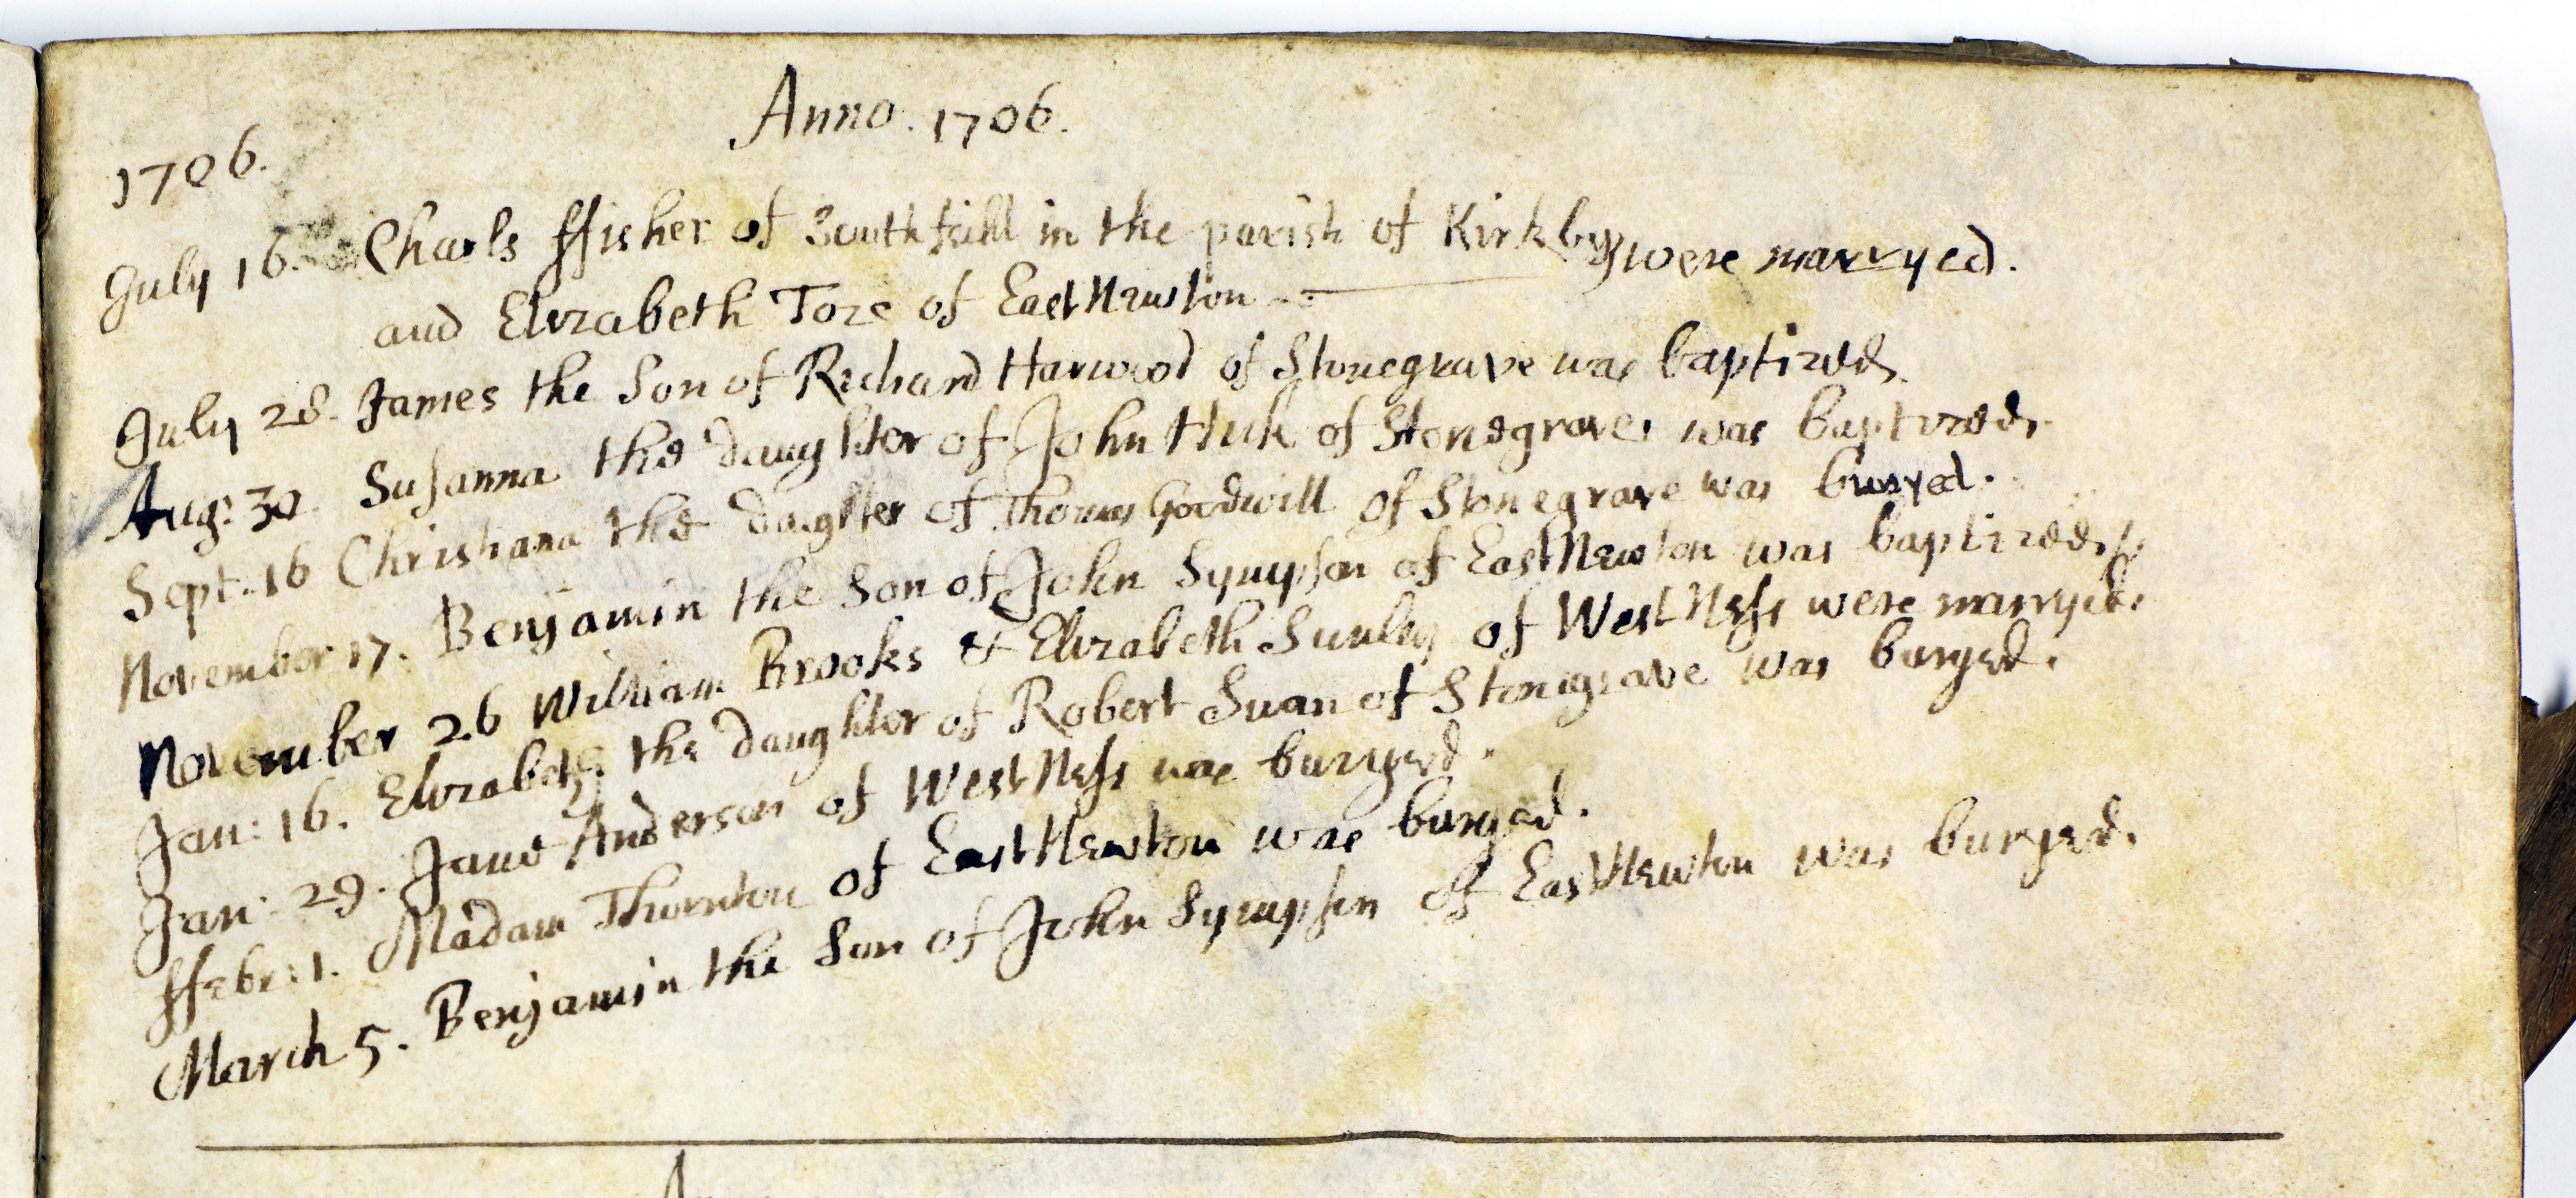 Anno. 1706.
1706.
July 16. Charls ffisher of Southfeild in the parish of Kirkby } were marryed.
and Elizabeth Toze of East Newton
July 28. James the Son of Richard Harwood of Stonegrave was baptized.
Aug: 30. Susanna the daughter of John Huk of Stonegrave was baptized.
Sept: 16 Christiana the daughter of Thomas Goodwill of Stonegrave was buryed.
November 17. Benjamin the Son of John Sympson of East Newton was baptized.
November 26 William Brooks & Elizabeth Sunley of West Ness were marryed.
Jan: 16. Elizabeth the daughter of Robert Swan of Stonegrave was buryed.
Jan: 29. Jane Anderson of West Ness was buryed.
ffebr: 1. Madam Thornton of East Newton was buryed.
March 5. Benjamin the Son of John Sympson of East Newton was buryed.